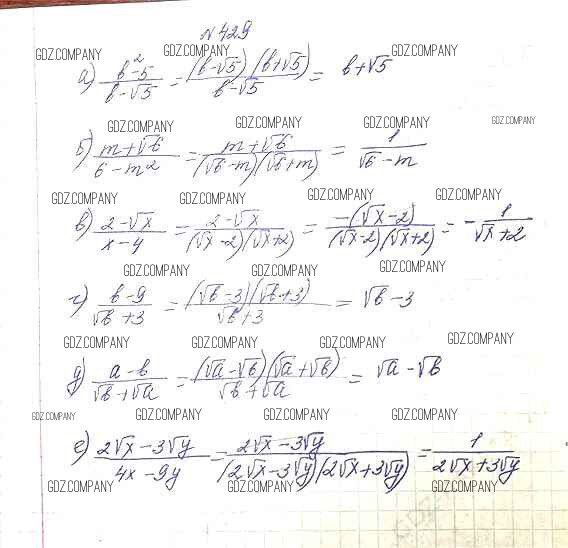 №429
GDZ.COMPANY GDZ.COMPANY GDZ.COMPANY
а) (b²-5)/(b-√5) = (b-√5)(b+√5)/(b-√5) = b+√5
GDZ.COMPANY GDZ.COMPANY GDZ.COMPANY GDZ.COMPANY
б) (m+√6)/(6-m²) = (m+√6)/((√6-m)(√6+m)) = 1/(√6-m)
GDZ.COMPANY GDZ.COMPANY GDZ.COMPANY GDZ.COMPANY
в) (2-√x)/(x-4) = (2-√x)/((√x-2)(√x+2)) = -(√x-2)/((√x-2)(√x+2)) = -1/(√x+2)
GDZ.COMPANY GDZ.COMPANY GDZ.COMPANY
г) (b-9)/(√b+3) = (√b-3)(√b+3)/(√b+3) = √b-3
GDZ.COMPANY GDZ.COMPANY GDZ.COMPANY GDZ.COMPANY
д) (a-b)/(√b+√a) = (√a-√b)(√a+√b)/(√b+√a) = √a-√b
GDZ.COMPANY GDZ.COMPANY GDZ.COMPANY GDZ.COMPANY
е) (2√x-3√y)/(4x-9y) = (2√x-3√y)/((2√x-3√y)(2√x+3√y)) = 1/(2√x+3√y)
GDZ.COMPANY GDZ.COMPANY GDZ.COMPANY